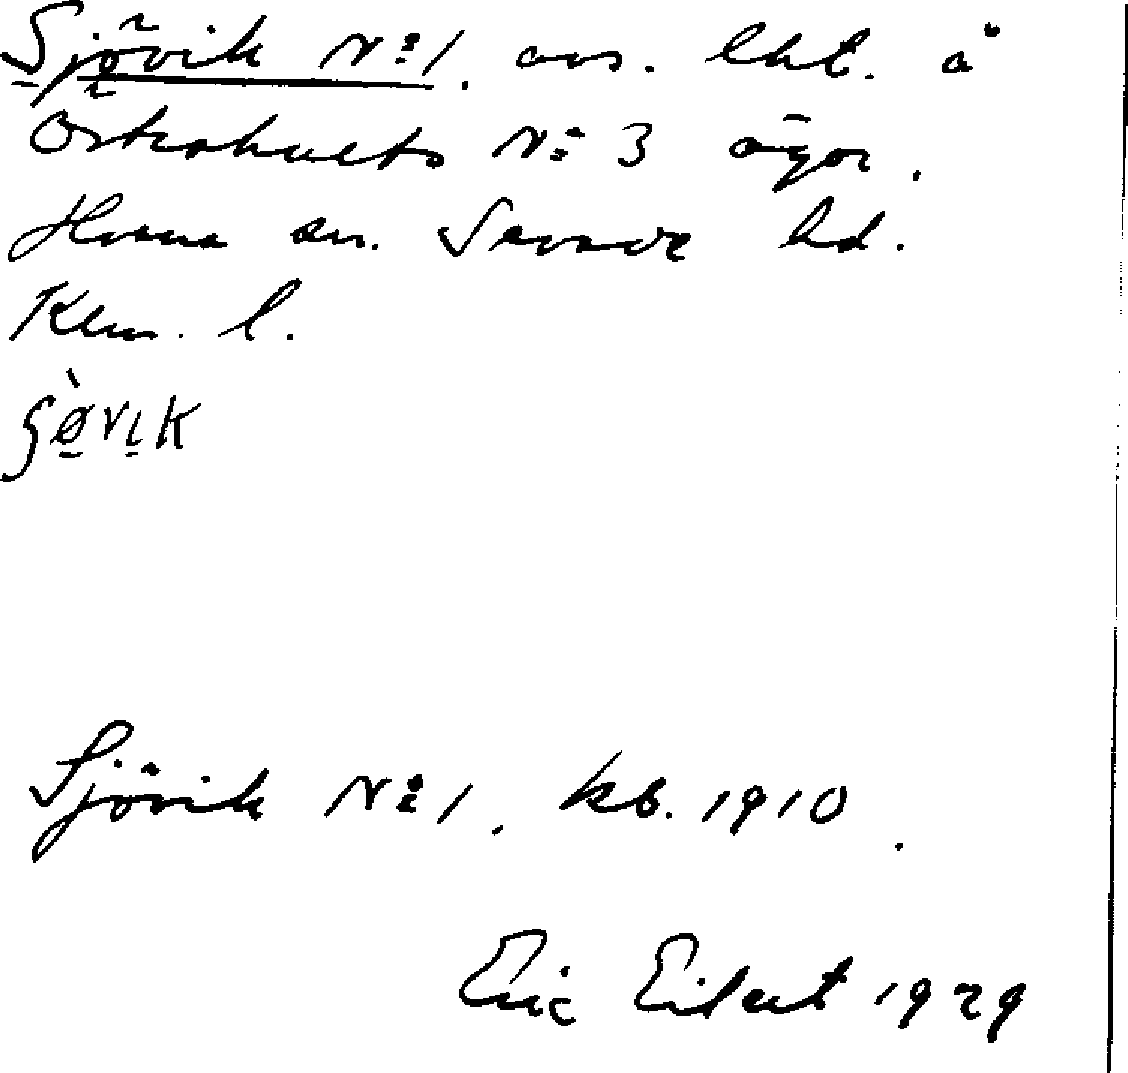 Sjövik N:o 1. avs. lht. å
Östrahults N:o 3 ägor.
Hvena sn. Sevede hd.
Klm. l.
ʃø̀vɩk
Sjövik N:o 1. kb. 1910.
Eric Eilert 1929